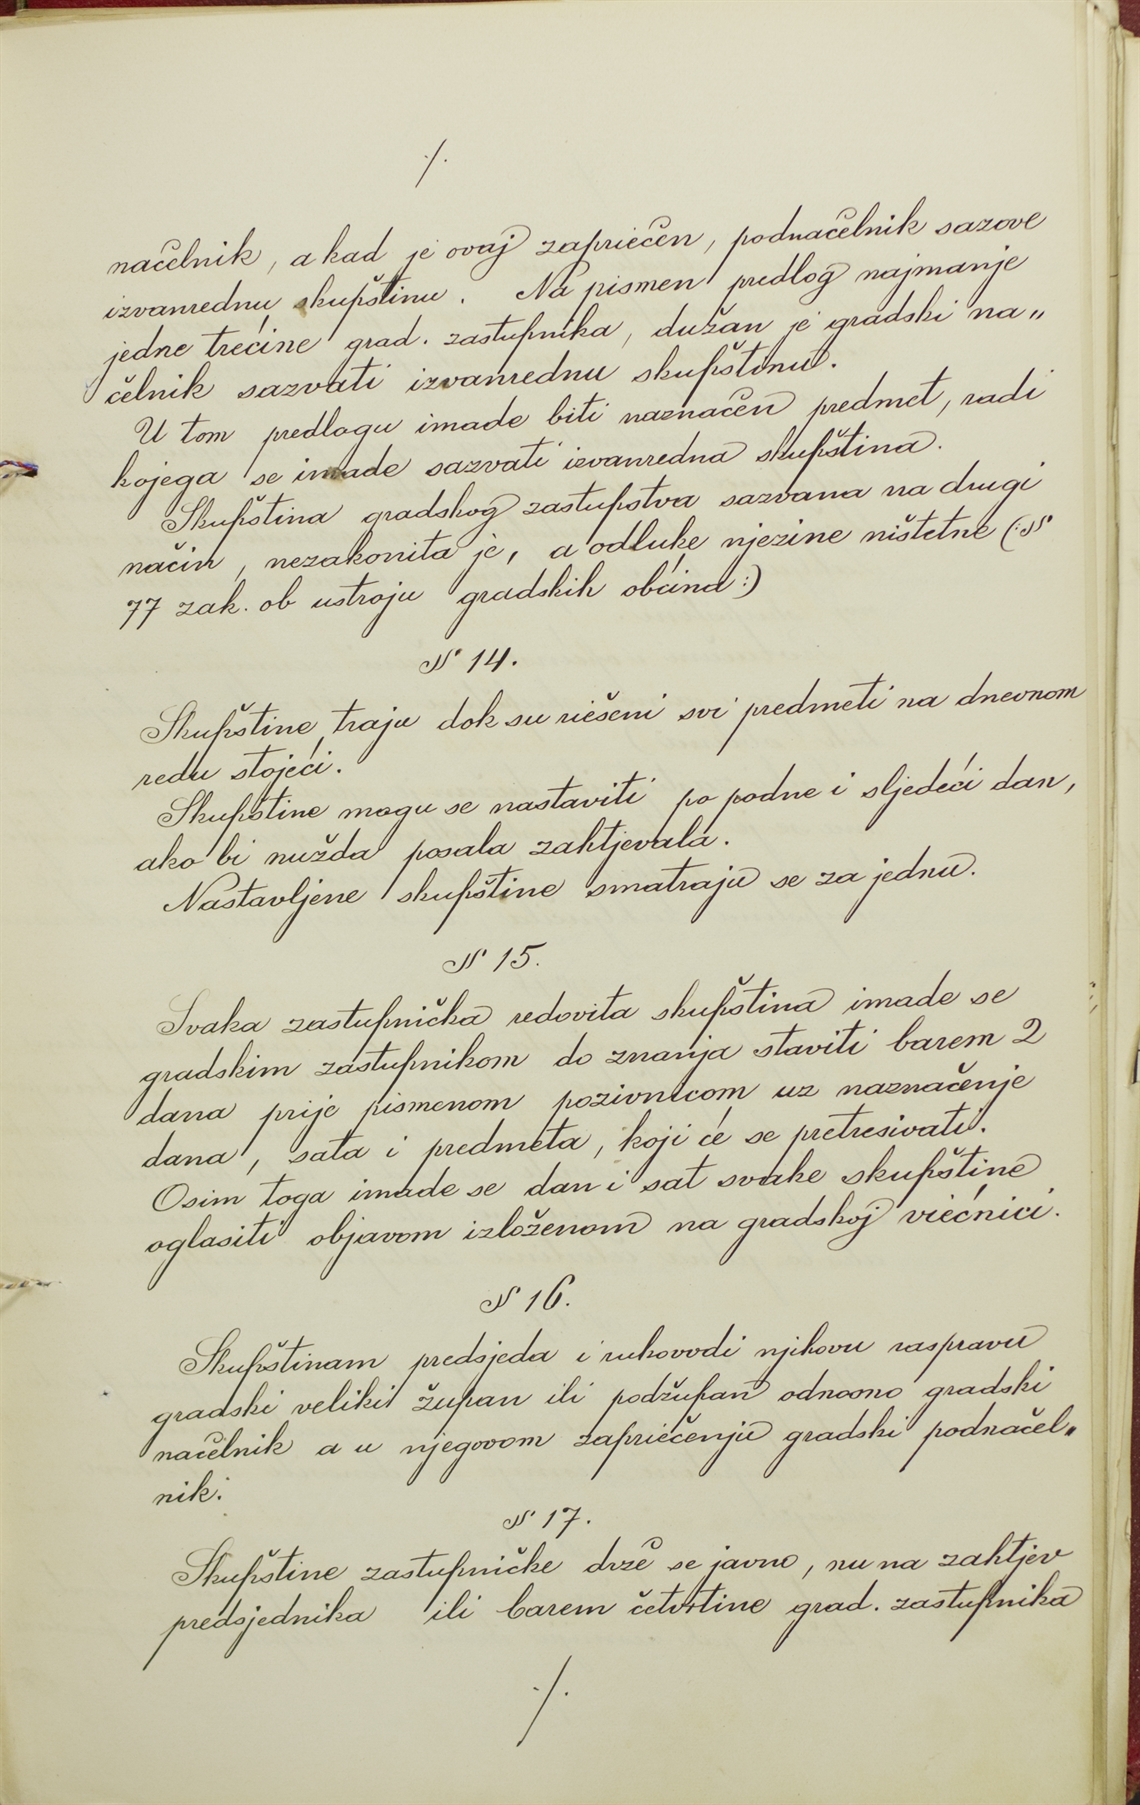 ./.
načelnik, a kad je ovaj zapriečen, podnačelnik sazove
izvanrednu skupštinu. Na pismen predlog najmanje
jedne trećine grad. zastupnika, dužan je gradski na„
čelnik sazvati izvanrednu skupštinu.
U tom predlogu imade biti naznačen predmet, radi
kojega se imade sazvati izvanredna skupština.
Skupština gradskog zastupstva sazvana na drugi
način, nezakonita je, a odluke njezine ništetne (:§
77 zak. ob ustroju gradskih obćina:)
§ 14.
Skupštine traju dok su riešeni svi predmeti na dnevnom
redu stojeći.
Skupštine mogu se nastaviti po podne i sljedeći dan,
ako bi nužda posala zahtjevala.
Nastavljene skupštine smatraju se za jednu.
§ 15.
Svaka zastupnička redovita skupština imade se
gradskim zastupnikom do znanja staviti barem 2
dana prije pismenom pozivnicom uz naznačenje
dana, sata i predmeta, koji će se pretresivati.
Osim toga imade se dan i sat svake skupštine
oglasiti objavom izloženom na gradskojviećnici.
§ 16.
Skupštinam predsjeda i rukovodi njihovu raspravu
gradski veliki župan ili podžupan odnosno gradski
načelnik a u njegovom zapriečenju gradski podnačel„
nik.
§ 17.
Skupštine zastupničke drže se javno, nu na zahtjev
predsjednika ili barem četvrtine grad. zastupnika
./.